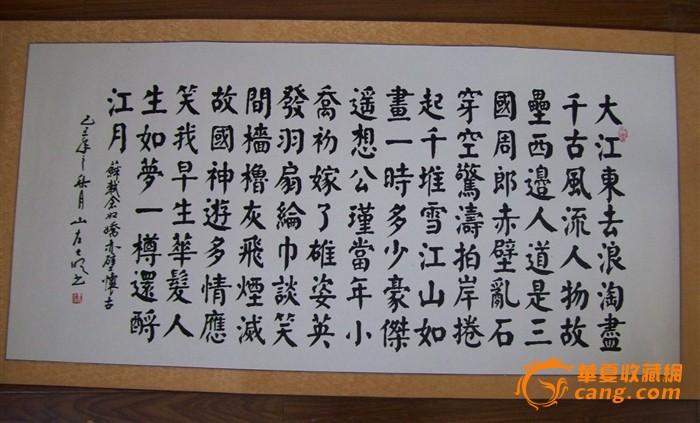 大江東去浪淘盡
千古風流人物故
壘西邊人道是三
國周郎赤壁亂石
穿空驚濤拍岸捲
起千堆雪江山如
畫一時多少豪傑
遥想公瑾當年小
喬初嫁了雄姿英
發羽扇綸巾談笑
間檣櫓灰飛煙滅
故國神遊多情應
笑我早生華髮人
生如夢一樽還酹
江月
蘇軾念奴嬌赤壁懷古
年之秋月山左
華夏收藏網
cang.com